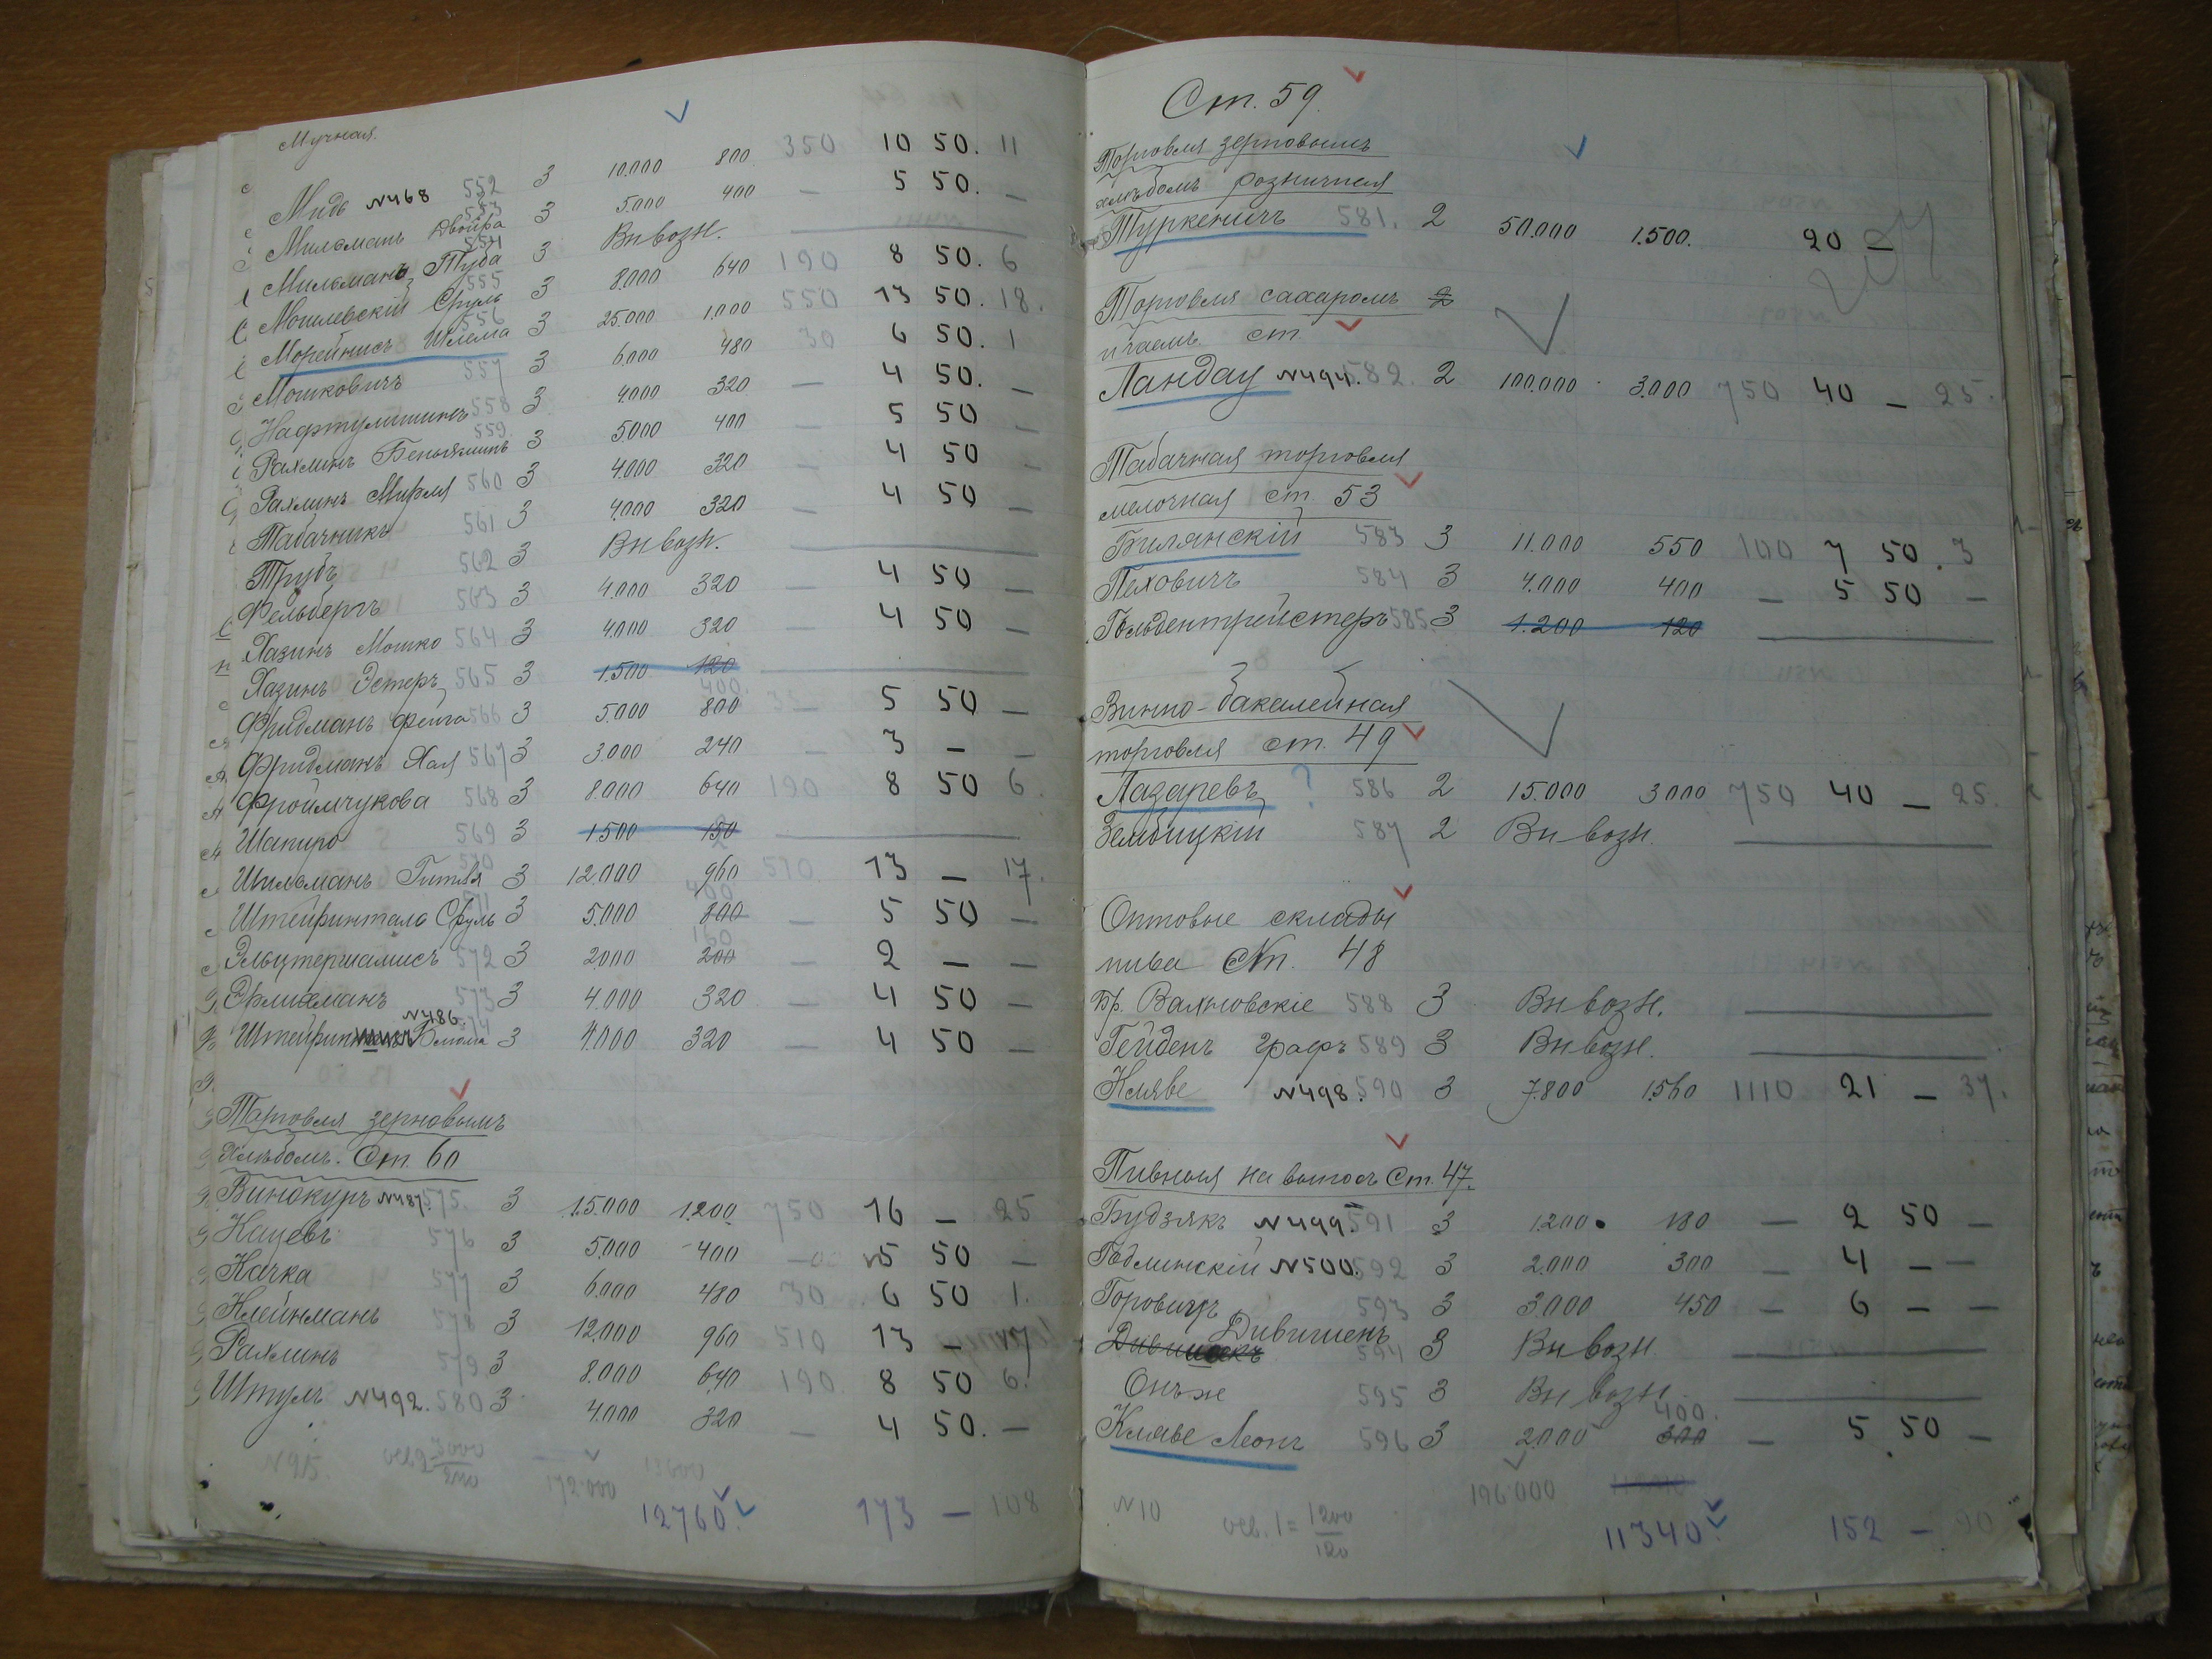 Мучная.
Мидь №468 552 3 10.000 800 350 10 50. 11
Мильманъ Двойра 553 3 5.000 400 — 5 50. —
Мильманъ Туба 554 3 Вн возн.
Могилевскій Сруль 555 3 8.000 640 190 8 50. 6
Морейнисъ Шлема 556 3 25.000 1.000 550 13 50. 18.
Мошковичъ 557 3 6.000 480 30 6 50. 1
Нафтулишинъ 558 3 4.000 320 — 4 50. —
Рахлинъ Беньяминъ 559. 3 5.000 400 — 5 50 —
Рахлинъ Мирля 560 3 4.000 320 — 4 50 —
Табачникъ 561 3 4.000 320 — 4 50 —
Трубъ 562 3 Вн возн.
Фельбергъ 563 3 4.000 320 — 4 50 —
Хазинъ Мошко 564 3 4.000 320 — 4 50 —
Хазинъ Эстеръ 565 3 1.500 120
400.
Фридманъ Фейга 566 3 5.000 800 — 5 50 —
Фридманъ Хая 567 3 3.000 240 — 3 — —
Фроймчукова 568 3 8.000 640 190 8 50 6.
Шапиро 569 3 1500 150
Шильманъ Гитля 570 3 12.000 960 510. 13 — 17.
400
Штейринталь Сруль 571 3 5.000 800 — 5 50 —
150
572 3 2.000 200 — 2 — —
Эрлихманъ 573 3 4.000 320 — 4 50 —
№486.
574 3 4.000 320 — 4 50 —
Торговля зерновымъ
хлѣбомъ. Ст. 60
Винокуръ №487. 575. 3 15.000 1.200 750 16 — 25
Кацевъ 576 3 5.000 400 — 5 50 —
Качка 577 3 6.000 480 30 6 50 1.
Клейнманъ 578 3 12.000 960 510 13 — 17
Рахлинъ 579 3 8.000 640 190. 8 50 6.
Штуль №492. 580 3 4.000 320 — 4 50. —
172.000 13600
12760. 173 — 108
Ст. 59.
Торговля зерновымъ
хлѣбомъ розничная
Туркеничъ 581. 2 50.000 1.500. 20 —
Торговля сахаромъ
и чаемъ ст.
Ландау №494. 582. 2 100.000 3.000 750 40 — 25.
Табачная торговля
мелочная ст. 53
Билянскій 583 3 11.000 550 100 7 50. 3
Пеховичъ 584 3 4.000 400 — 5 50 —
Гольдентрейстеръ 585. 3 1.200 120
Винно-бакалейная
торговля ст. 49
Лазаревъ ? 586 2 15.000 3000 750 40 — 25.
Зембицкій 587 2 Вн возн.
Оптовые склады
пива Ст. 48
Бр. Вахновскіе 588 3 Вн возн.
Гейденъ графъ 589 3 Вн возн.
Кляве №498. 590 3 7.800 1.560 1110 21 — 37.
Пивныя на выносъ Ст. 47.
Будзякъ №499. 591 3 1.200. 180 — 2 50 —
Годлинскій №500. 592 3 2.000 300 — 4 — —
Горовицъ 593 3 3.000 450 — 6 — —
Дивишекъ 594 3 Вн возн.
Онъ же 595 3 Вн возн.
400.
Кляве Леонъ 596 3 2.000 300 — 5 50 —
196.000
№10 осв. 1 = 1200
120
11340. 152 — 90